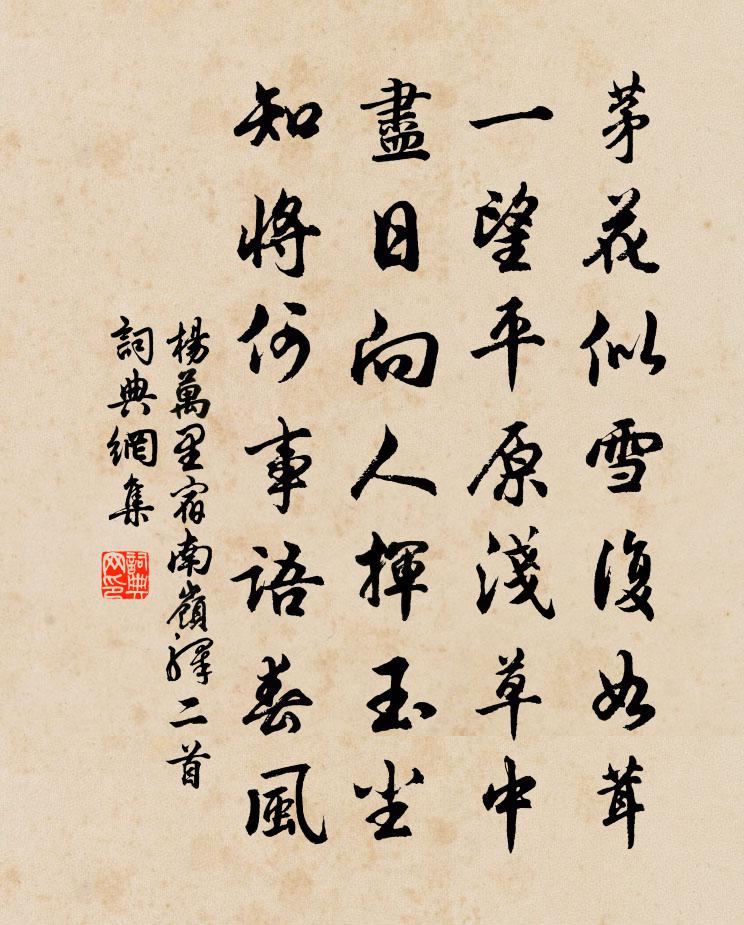 茅花似雪復如茸
一望平原淺草中
盡日向人揮玉尘
知將何事語春風
楊萬里宿南嶺驛二首
詞典網集
詞典
网印